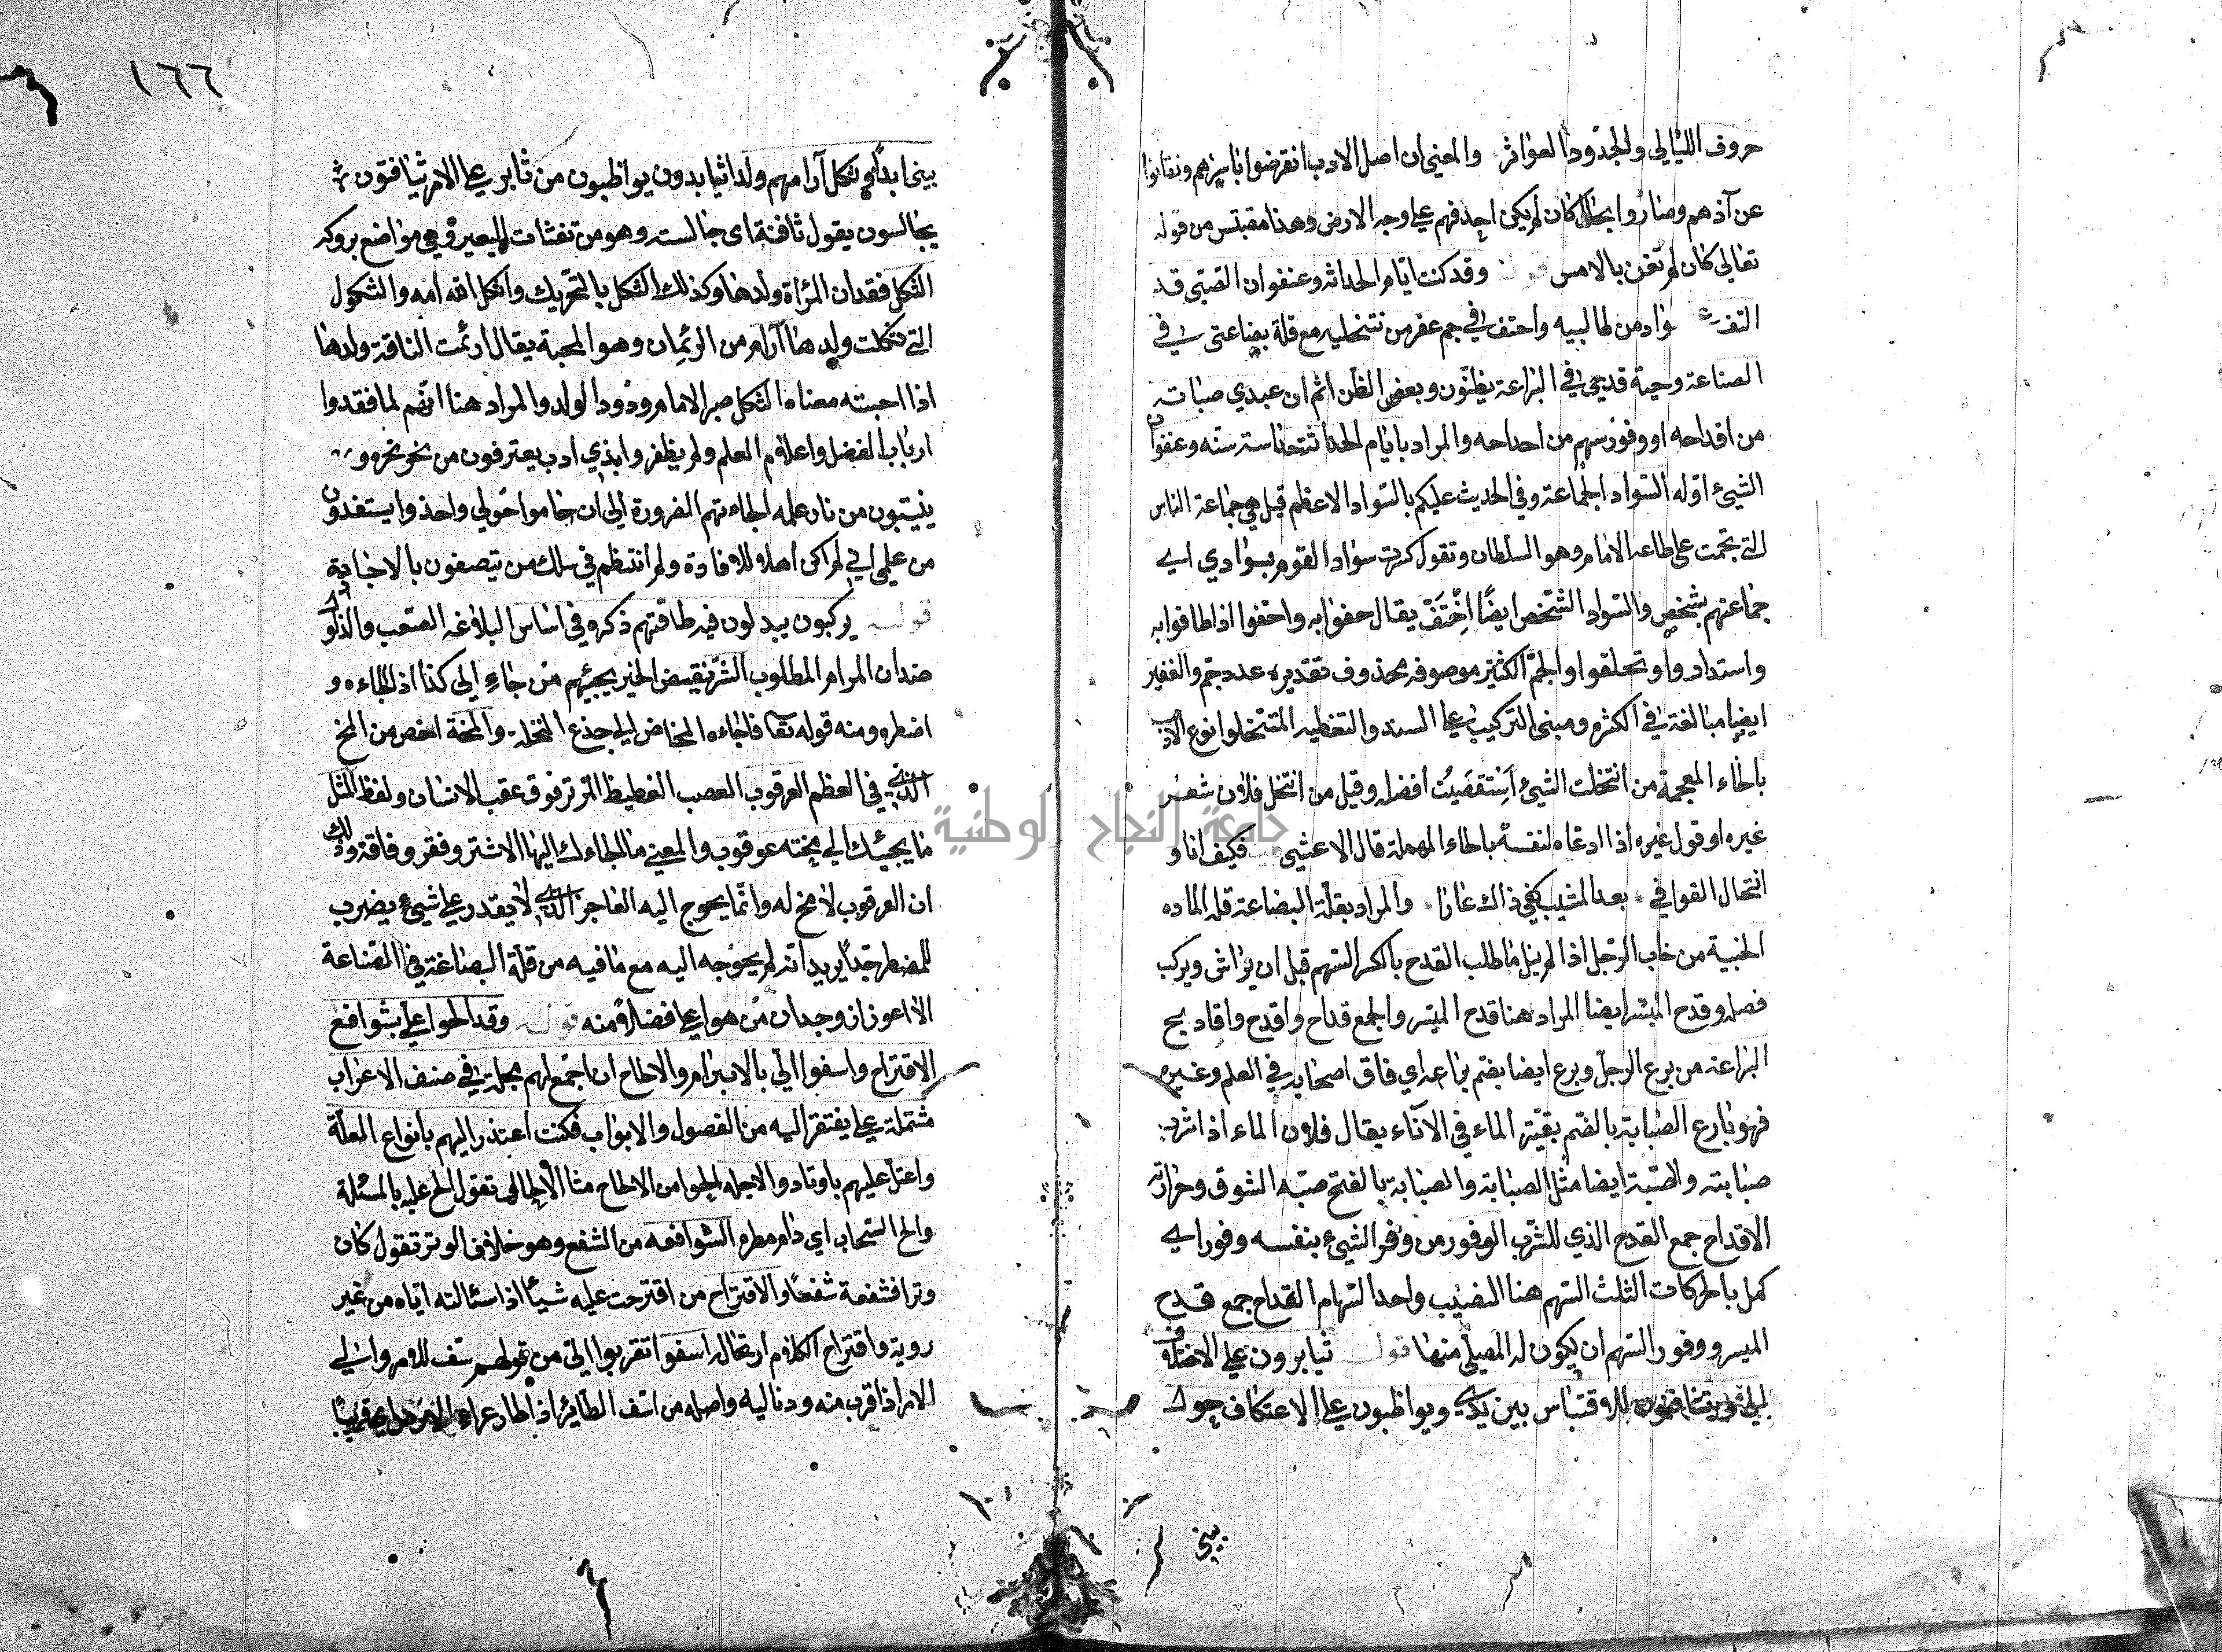 حروف الليالي والجدود العواثر والمعنى ان اصل الادب انقرضوا باسرهم وتفانوا
عن آخرهم وصاروا بحال كان لم يكن احد فهم على وجه الارض وهذا مقتبس من قوله
تعالى كان لم تغن بالامس وقد كنت ايام الحداثه وعنفوان الصبى قد
التف سواد من طالبيه واحتف في جم غفير من منتحليه مع قلة بضاعتى في
الصناعة وخيبة قدحي في البراعة يظنون وبعض الظن اثم ان عندي صبابة
من اقداحه او وفور سهم من احداحه والمراد بايام الحداثة حداثة سنه وعنفوان
الشيئ اوله السواد الجماعة وفي الحديث عليكم بالسواد الاعظم قيل هي جماعة الناس
التي تجمعت على طاعة الامام وهو السلطان وتقول كثرت سواد القوم بسوادي اي
جماعتهم بشخصي والسواد الشخص ايضًا اِحْتَفّ يقال حفوا به واحتفوا اذا طافوا به
واستداروا وتحلقوا والجمّ الكثير موصوفه محذوف تقديره عدد جم والغفير
ايضا مبالغة في الكثره ومبنى التركيب على الستر والتغطيه المنتخلوا نوع الادب
بالخاء المعجمة من انتخلت الشيئ اِستقصيتُ أفضله وقيل من انتحل فلان شعر
غيره او قول غيره اذا ادعاه لنفسه بالحاء المهملة قال الاعشى فكيف انا و
انتحال القوافي بعد المشيب كفى ذاك عارا والمراد بقلة البضاعة قلة الماده
الخيبة من خاب الرجل اذا لم ينل ما طلب القدح بالكسر السهم قبل ان يراش ويركب
نصله وقدح الميسر ايضا المراد هنا قدح الميسر والجمع قداح واقدح واقاديح
البراعة من برع الرجل وبرع ايضا بضم براعة اي فاق اصحابه في العلم وغيره
فهو بارع الصبابة بالضم بقية الماء في الآناء يقال فلان الماء اذا شرب
صبابته والصبّة ايضا مثل الصبابة والصبابة بالفتح صبة الشوق وحرارته
الاقداح جمع القدح الذي للشرب الوفور من وفر الشيئ بنفسه وفورا اي
كمل بالحركات الثلث السهم هنا النصيب واحد السهام القداح جمع قدح
الميسر ووفور السهم ان يكون له المصلى منها قوله ثيابرون على الاختلاف
الي ويتنافنون للاقتباس بين يدي ويواظبون على الاعتكاف حول
بيني
١٦٦
بيني ابدا وثكل آرامهم ولدا ثيابدون يواظبون من ثابر على الامر ثيافنون
يجالسون يقول ثافنه اى جالسته وهو من ثفنات البعير وهي مواضع بروكه
الثكل فقدان المرأة ولدها وكذلك الثكل بالتحريك واثكل الله امه والثكول
التي ثكلت ولدها آرام من الرئمان وهو المحبة يقال ارئمت الناقة ولدها
اذا احبته معناه الثكل صير الامام ودود الولد والمراد هنا انهم لما فقدوا
ارباب الفضل واعلام العلم ولم يظفروا بذي ادب يعترفون من نحو نحره و
يقتبسون من نار علمه الجاءتهم الضرورة الى ان حاموا حولي واخذوا يستفدون
من علمي اني لم اكن اهلا للافادة ولم انتظم في سلك من يتصفون بالاجادة
قوله يركبون يبدلون فيه طاقتهم ذكره في اساس البلاغه الصعب والذلول
ضدان المرام المطلوب الشر نقيض الخير يجيئهم من جاء الى كذا اذا الجاءه و
اضطره ومنه قوله تعا فاجاءها المخاض الى جذع النخلة والمخة اخص من المخ
الذي في العظم العرقوب العصب الغليظ الموتر فوق عقب الانسان ولفظ المثل
ما يجيئك الى مخته عرقوب والمعنى ما الجاءك اليها الا شر وفقر وفاقة وذلك
ان العرقوب لا مخ له وانما يحوج اليه العاجز الذي لا يقدر على شيئ يضرب
للمضطر جدًا يريد انه لم يحوجه اليه مع ما فيه من قلة البضاعة في الصناعة
الا اعوزاز وجدان من هو اعلى فضلا منه قوله وقد الحوا علي بشوافع
الاقتراح واسفوا الي بالابرام والالحاح ان اجمع لهم مجملة في صنف الاعراب
مشتملة على يفتقر اليه من الفصول والابواب فكنت اعتذر اليهم بانواع العلة
واعتل عليهم باوتاد والاجله لحوا من الالحاح تقول الح عليه بالمسئلة
والح السحاب اي دام مطره الشوافعه من الشفع وهو خلاف الوتر تقول كان
وترا فشفعة شفعًا والاقتراح من اقترحت عليه شيئًا اذا سئالته اياه من غير
روية واقتراح الكلام ارتجاله اسفوا تقربوا الي من قولهم سف للامر واسف الى
الامر اذا قرب منه ودنا اليه واصله من اسف الطائر اذا طار على الارض قريبًا